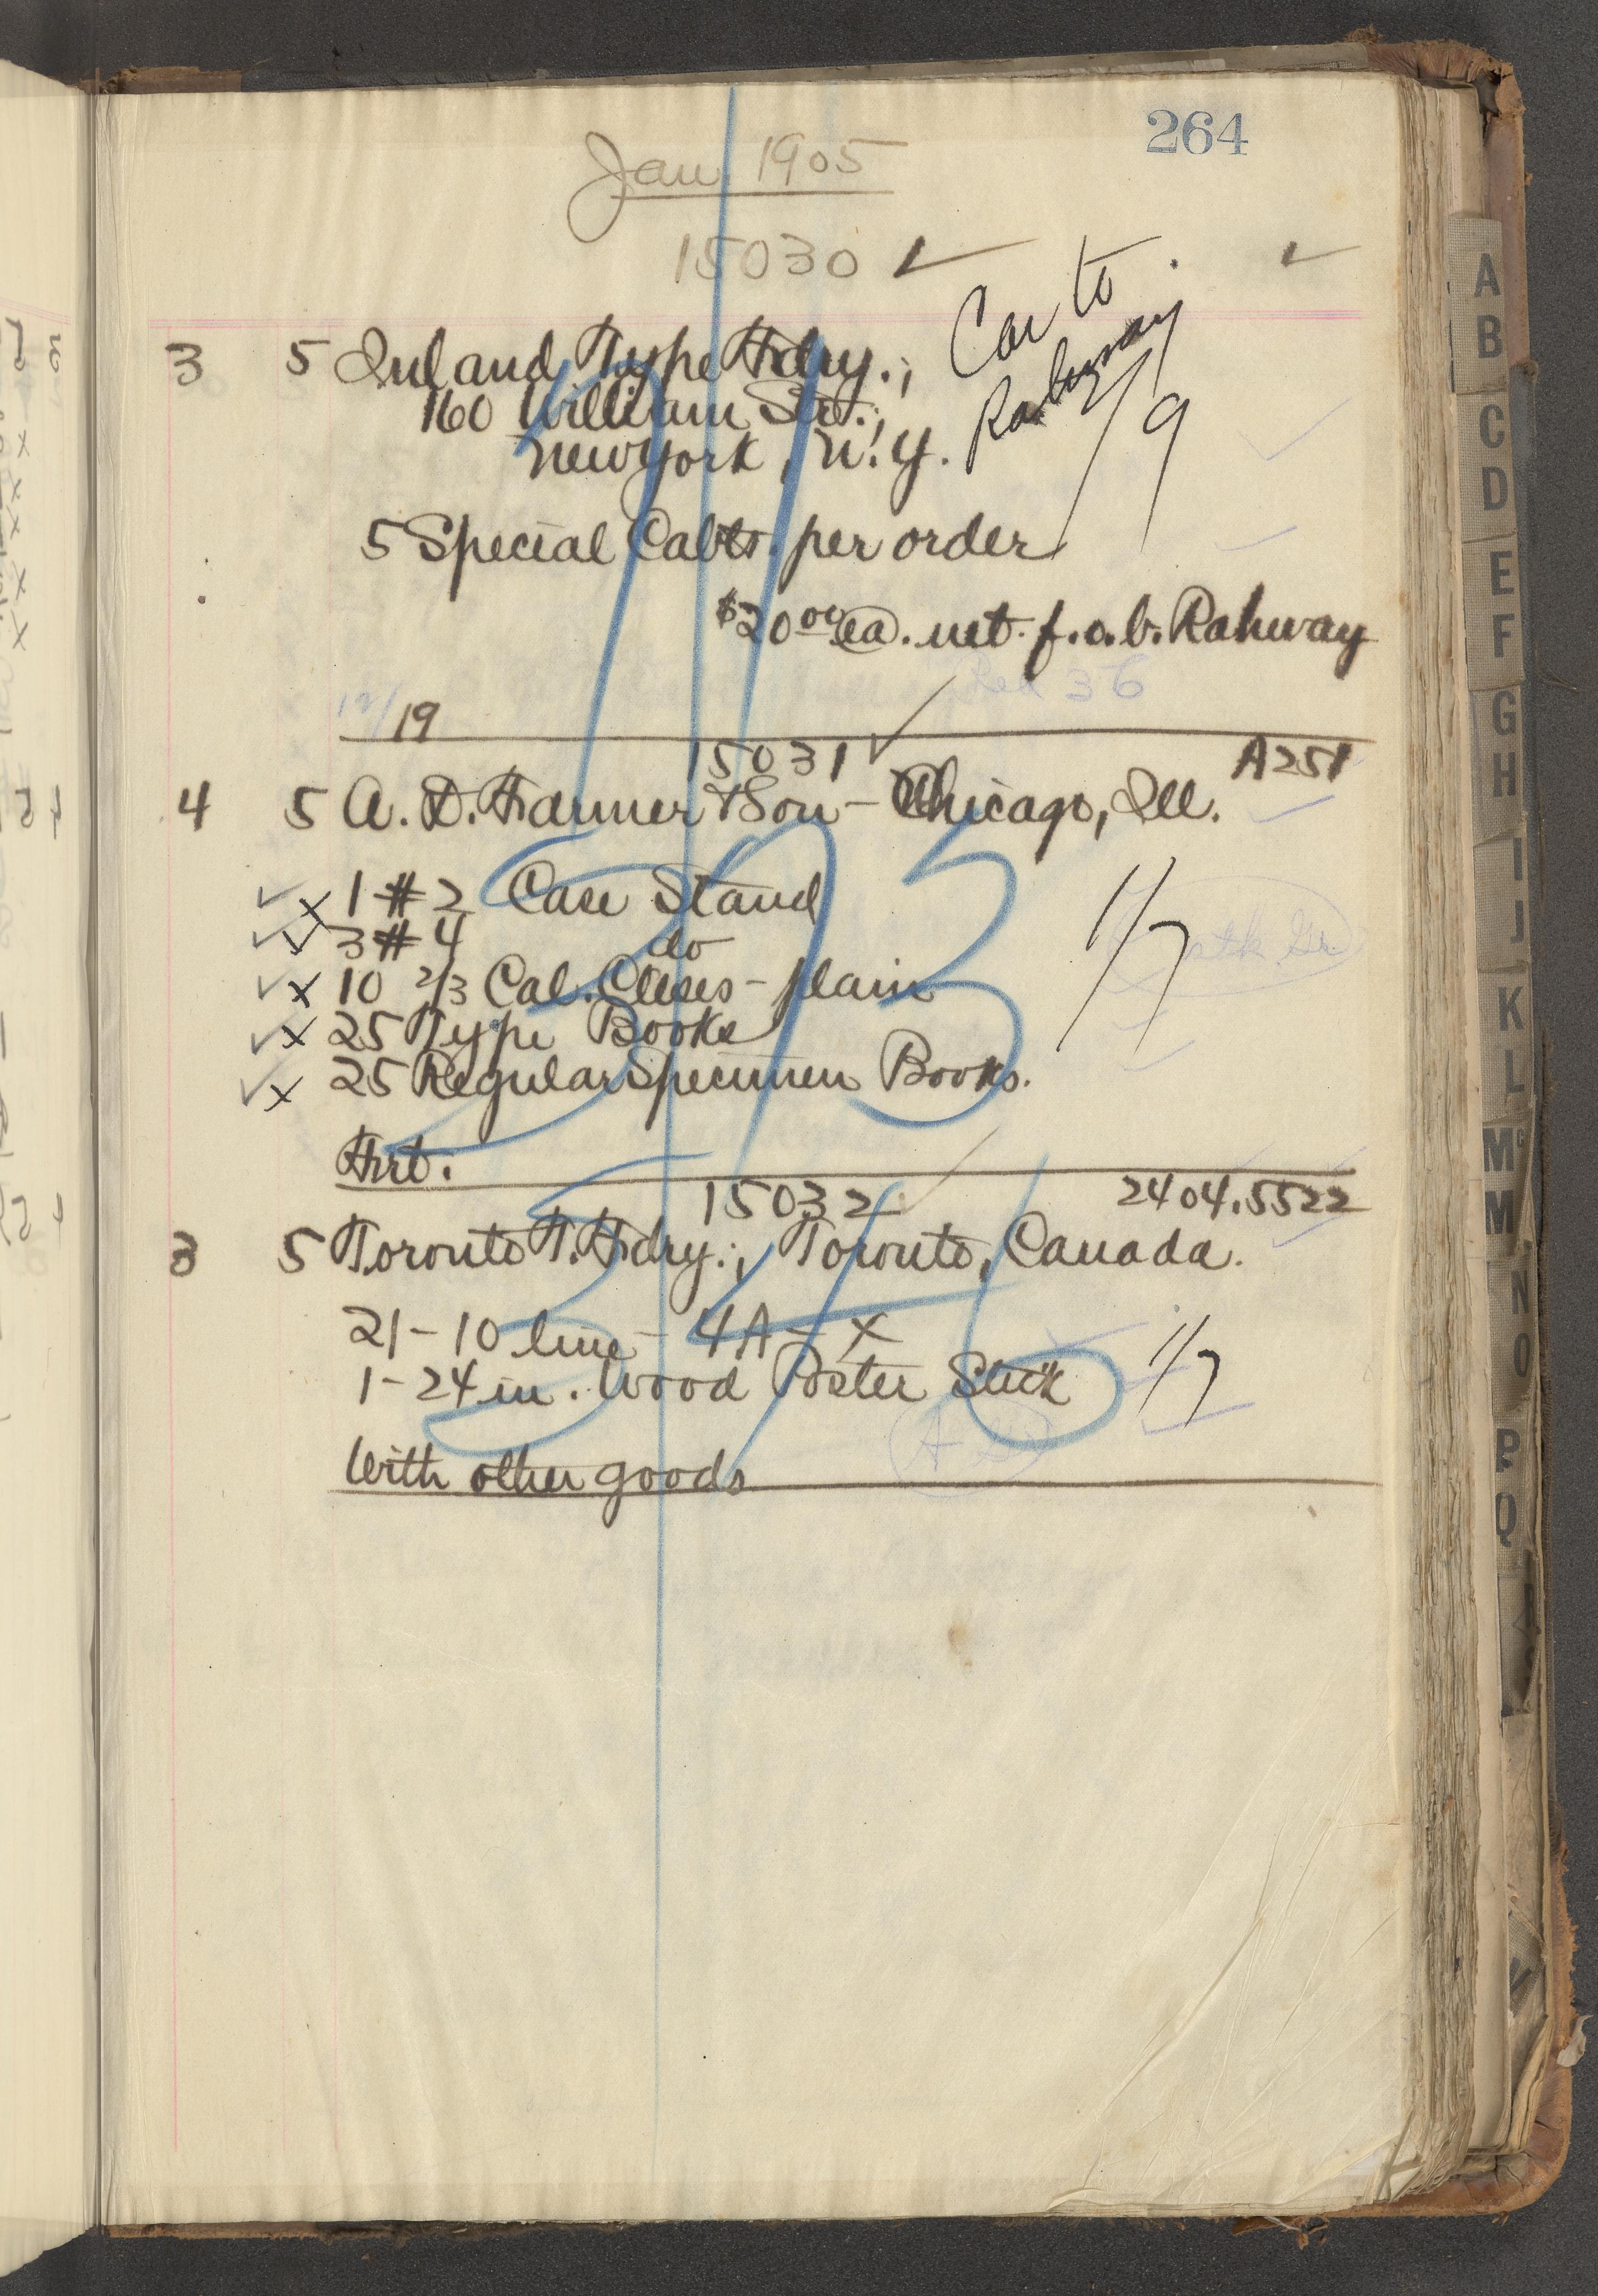 264
Jan 1905
15030 ✓
Car to
Rahway
1/9
3 5 Inland Type Fdry.;
160 William Str.;
New York, N.Y.
5 Special Cabts. per order
$20.00 ea. net f.o.b. Rahway
12/19
15031 ✓ A251
4 5 A. D. Farmer & Son - Chicago, Ill.
✓ x 1 #2 Case Stand
✓ 3 #4 do
✓ x 10 2/3 Cal. Cases - plain
✓ x 25 Type Books
✓ x 25 Regular Specimen Books.
1/7
Frt.
15032 ✓ 2404.5522
3 5 Toronto T. Fdry.; Toronto, Canada.
21-10 line - 4A - x
1-24 in. Wood Poster Stick
1/7
With other goods
A
B
C
D
E
F
G
H
I
J
K
L
Mc
M
N
O
P
Q